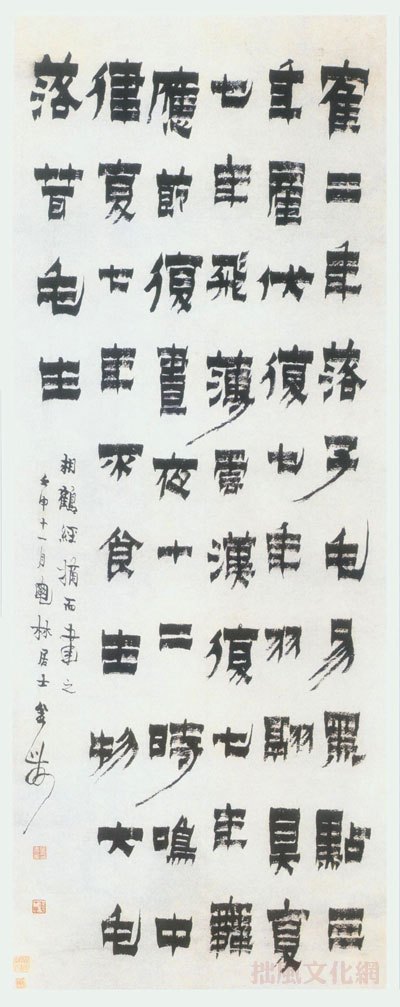 寉二年落子毛易黑點三
年產伏復七年羽翮具复
七年飛薄雲漢復七年舞
應節復晝夜十二時鳴中
律复七年不食生物大毛
落茸毛生
相鶴經摘而書之
壬申十一月 林居士
拙風文化網